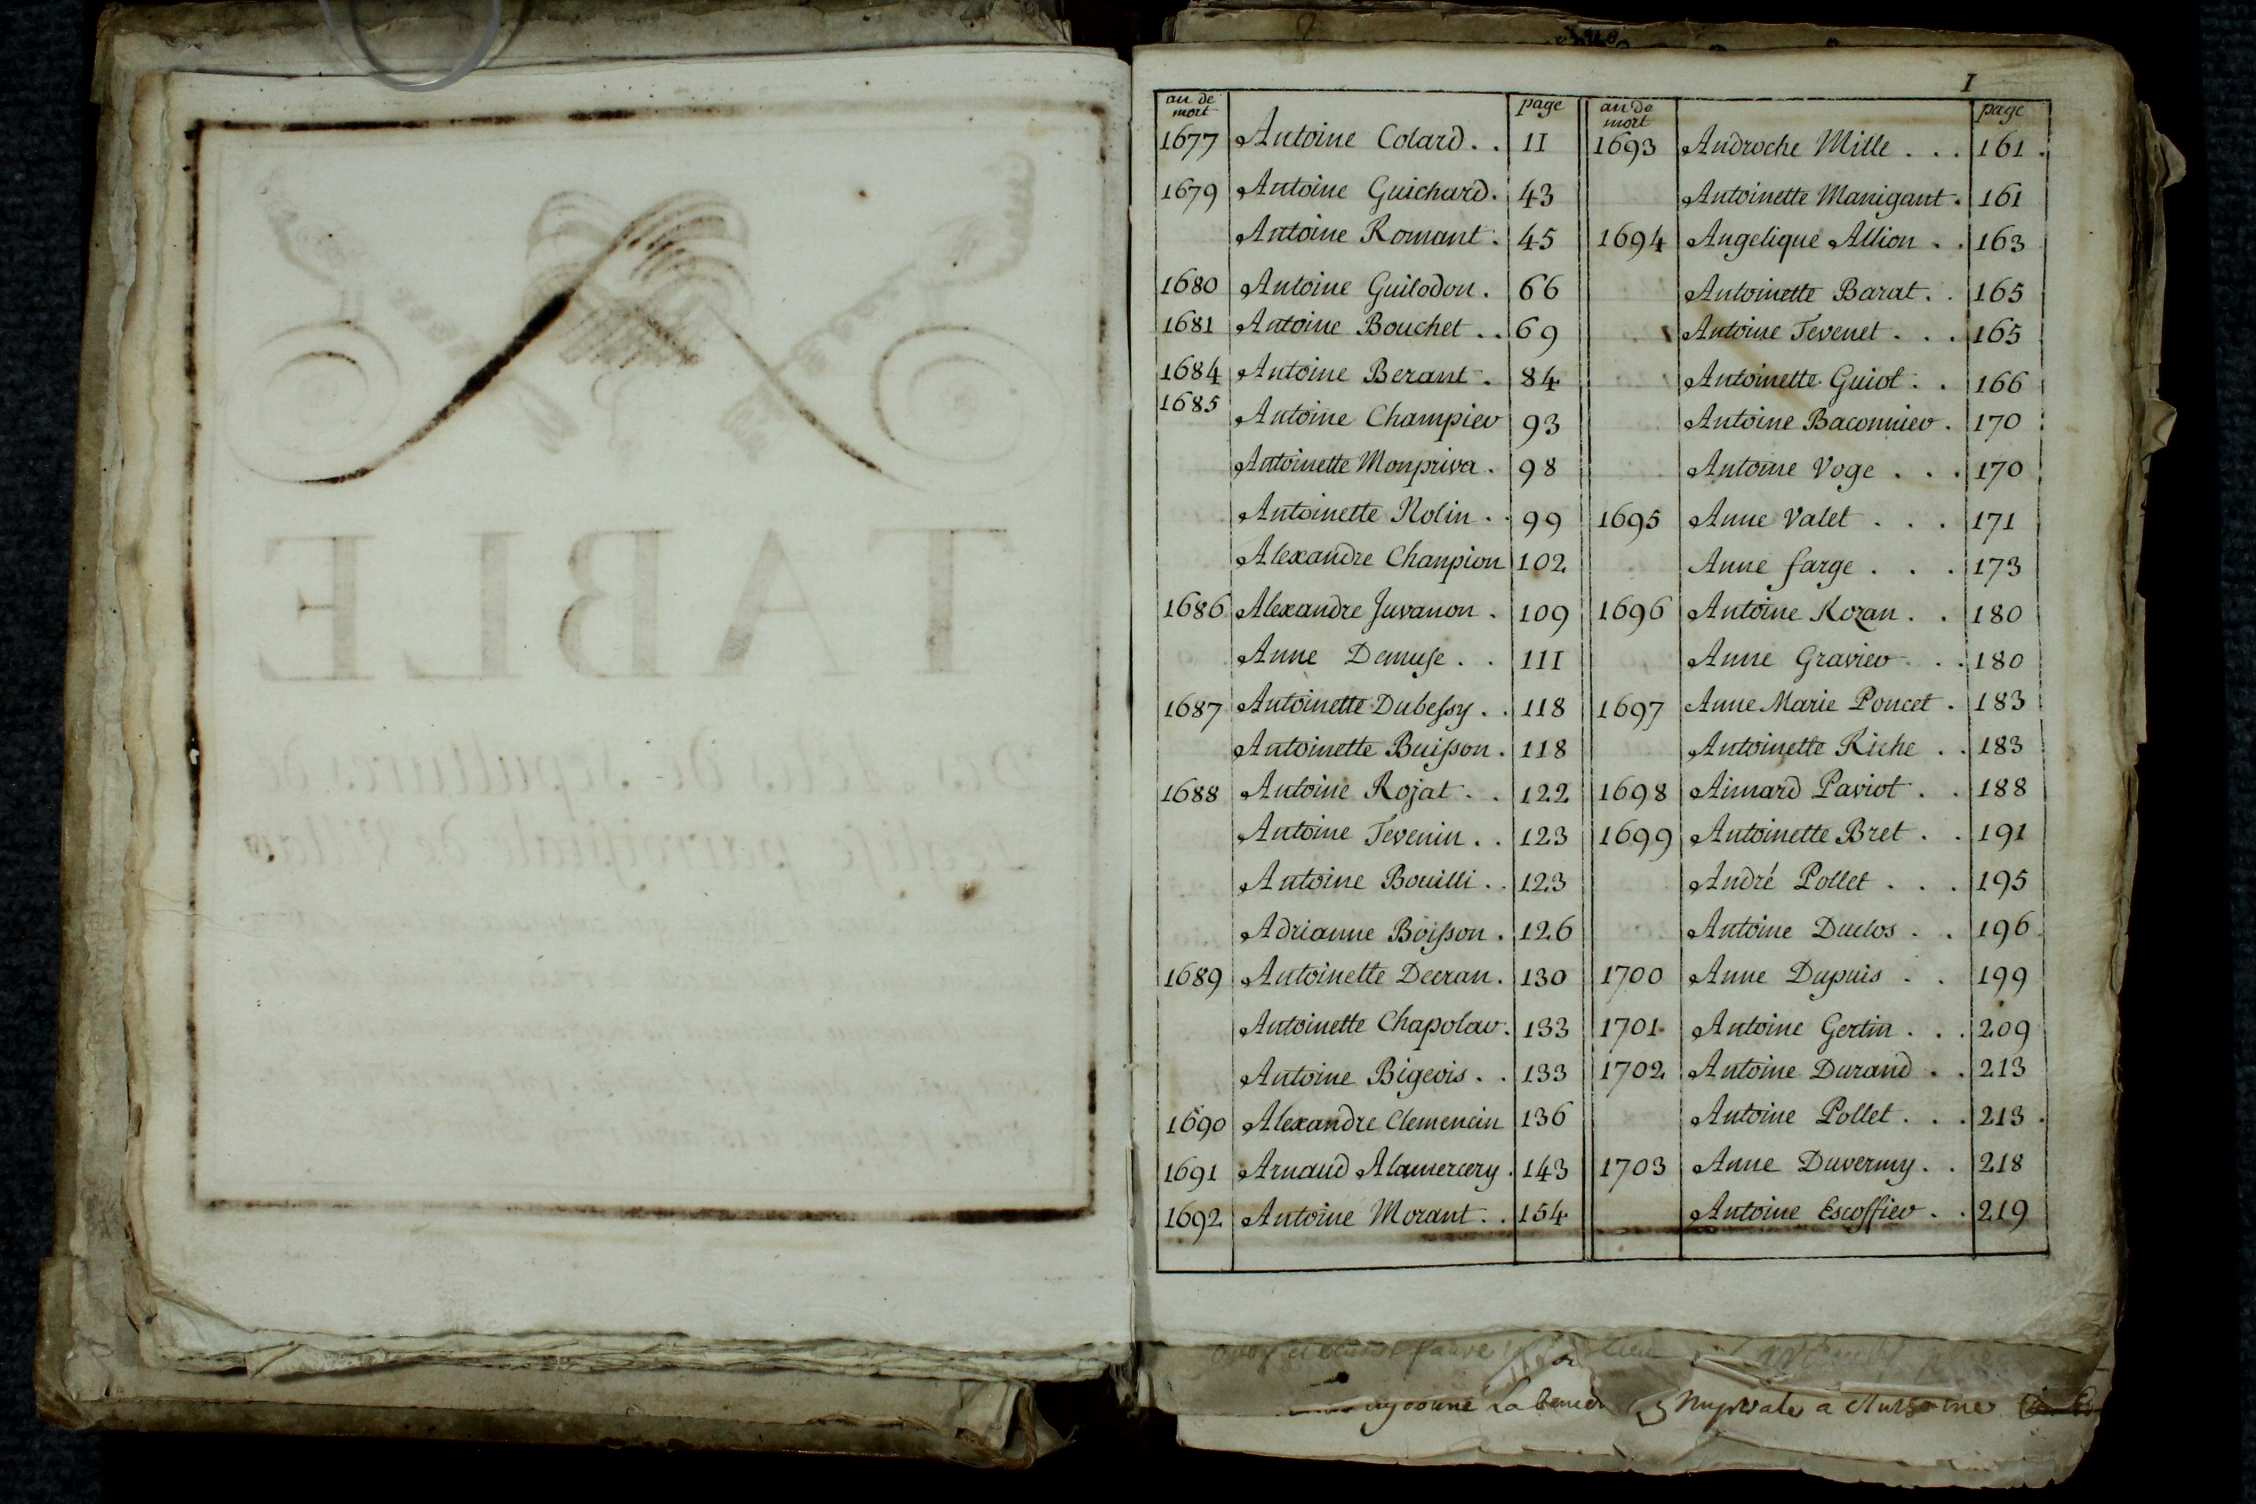 TABLE
I
an de mort page
1677 Antoine Colard . . 11
1679 Antoine Guichard . 43
Antoine Romant . 45
1680 Antoine Guilodon . 66
1681 Antoine Bouchet . . 69
1684 Antoine Berant . 84
1685 Antoine Champier 93
Antoinette Monpriva . 98
Antoinette Nolin . . 99
Alexandre Chanpion 102
1686 Alexandre Juvanon . 109
Anne Demuse . . 111
1687 Antoinette Dubessy . . 118
Antoinette Buisson . 118
1688 Antoine Rojat . . 122
Antoine Tevenin . . 123
Antoine Bouilli . . 123
Adrianne Boisson . 126
1689 Antoinette Decran . 130
Antoinette Chapolar . 133
Antoine Bigeois . . 133
1690 Alexandre Clemencin 136
1691 Arnaud Alamercery . 143
1692 Antoine Morant . . 154
an de mort page
1693 Androche Mille . . . 161 .
Antoinette Manigant . 161
1694 Angelique Allion . . 163
Antoinette Barat . . 165
Antoine Tevenet . . . 165
Antoinette Guiot . . 166
Antoine Baconnier . 170
Antoine Voge . . . 170
1695 Anne Valet . . . 171
Anne farge . . . 173
1696 Antoine Rozan . . 180
Anne Gravier . . . 180
1697 Anne Marie Poncet . 183
Antoinette Riche . . 183
1698 Aimard Paviot . . 188
1699 Antoinette Bret . . 191
André Pollet . . . 195
Antoine Duclos . . 196
1700 Anne Dupuis . . 199
1701 Antoine Gertin . . . 209
1702 Antoine Durand . . 213
Antoine Pollet . . . 213 .
1703 Anne Duvermy . . 218
Antoine Escoffier . . 219